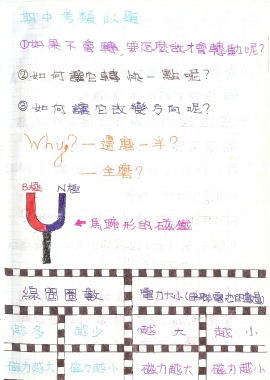 期中考類似題
①如果不會轉,要怎麼做才會轉動呢?
②如何讓它轉快一點呢?
③如何讓它改變方向呢?
Why?一邊磨一半?
一全磨?
S極 N極
←馬蹄形的磁鐵
線圈圈數 電力大小(串聯電池的數量)
越多 越少 越大 越小
磁力越大 磁力越小 磁力越大 磁力越小